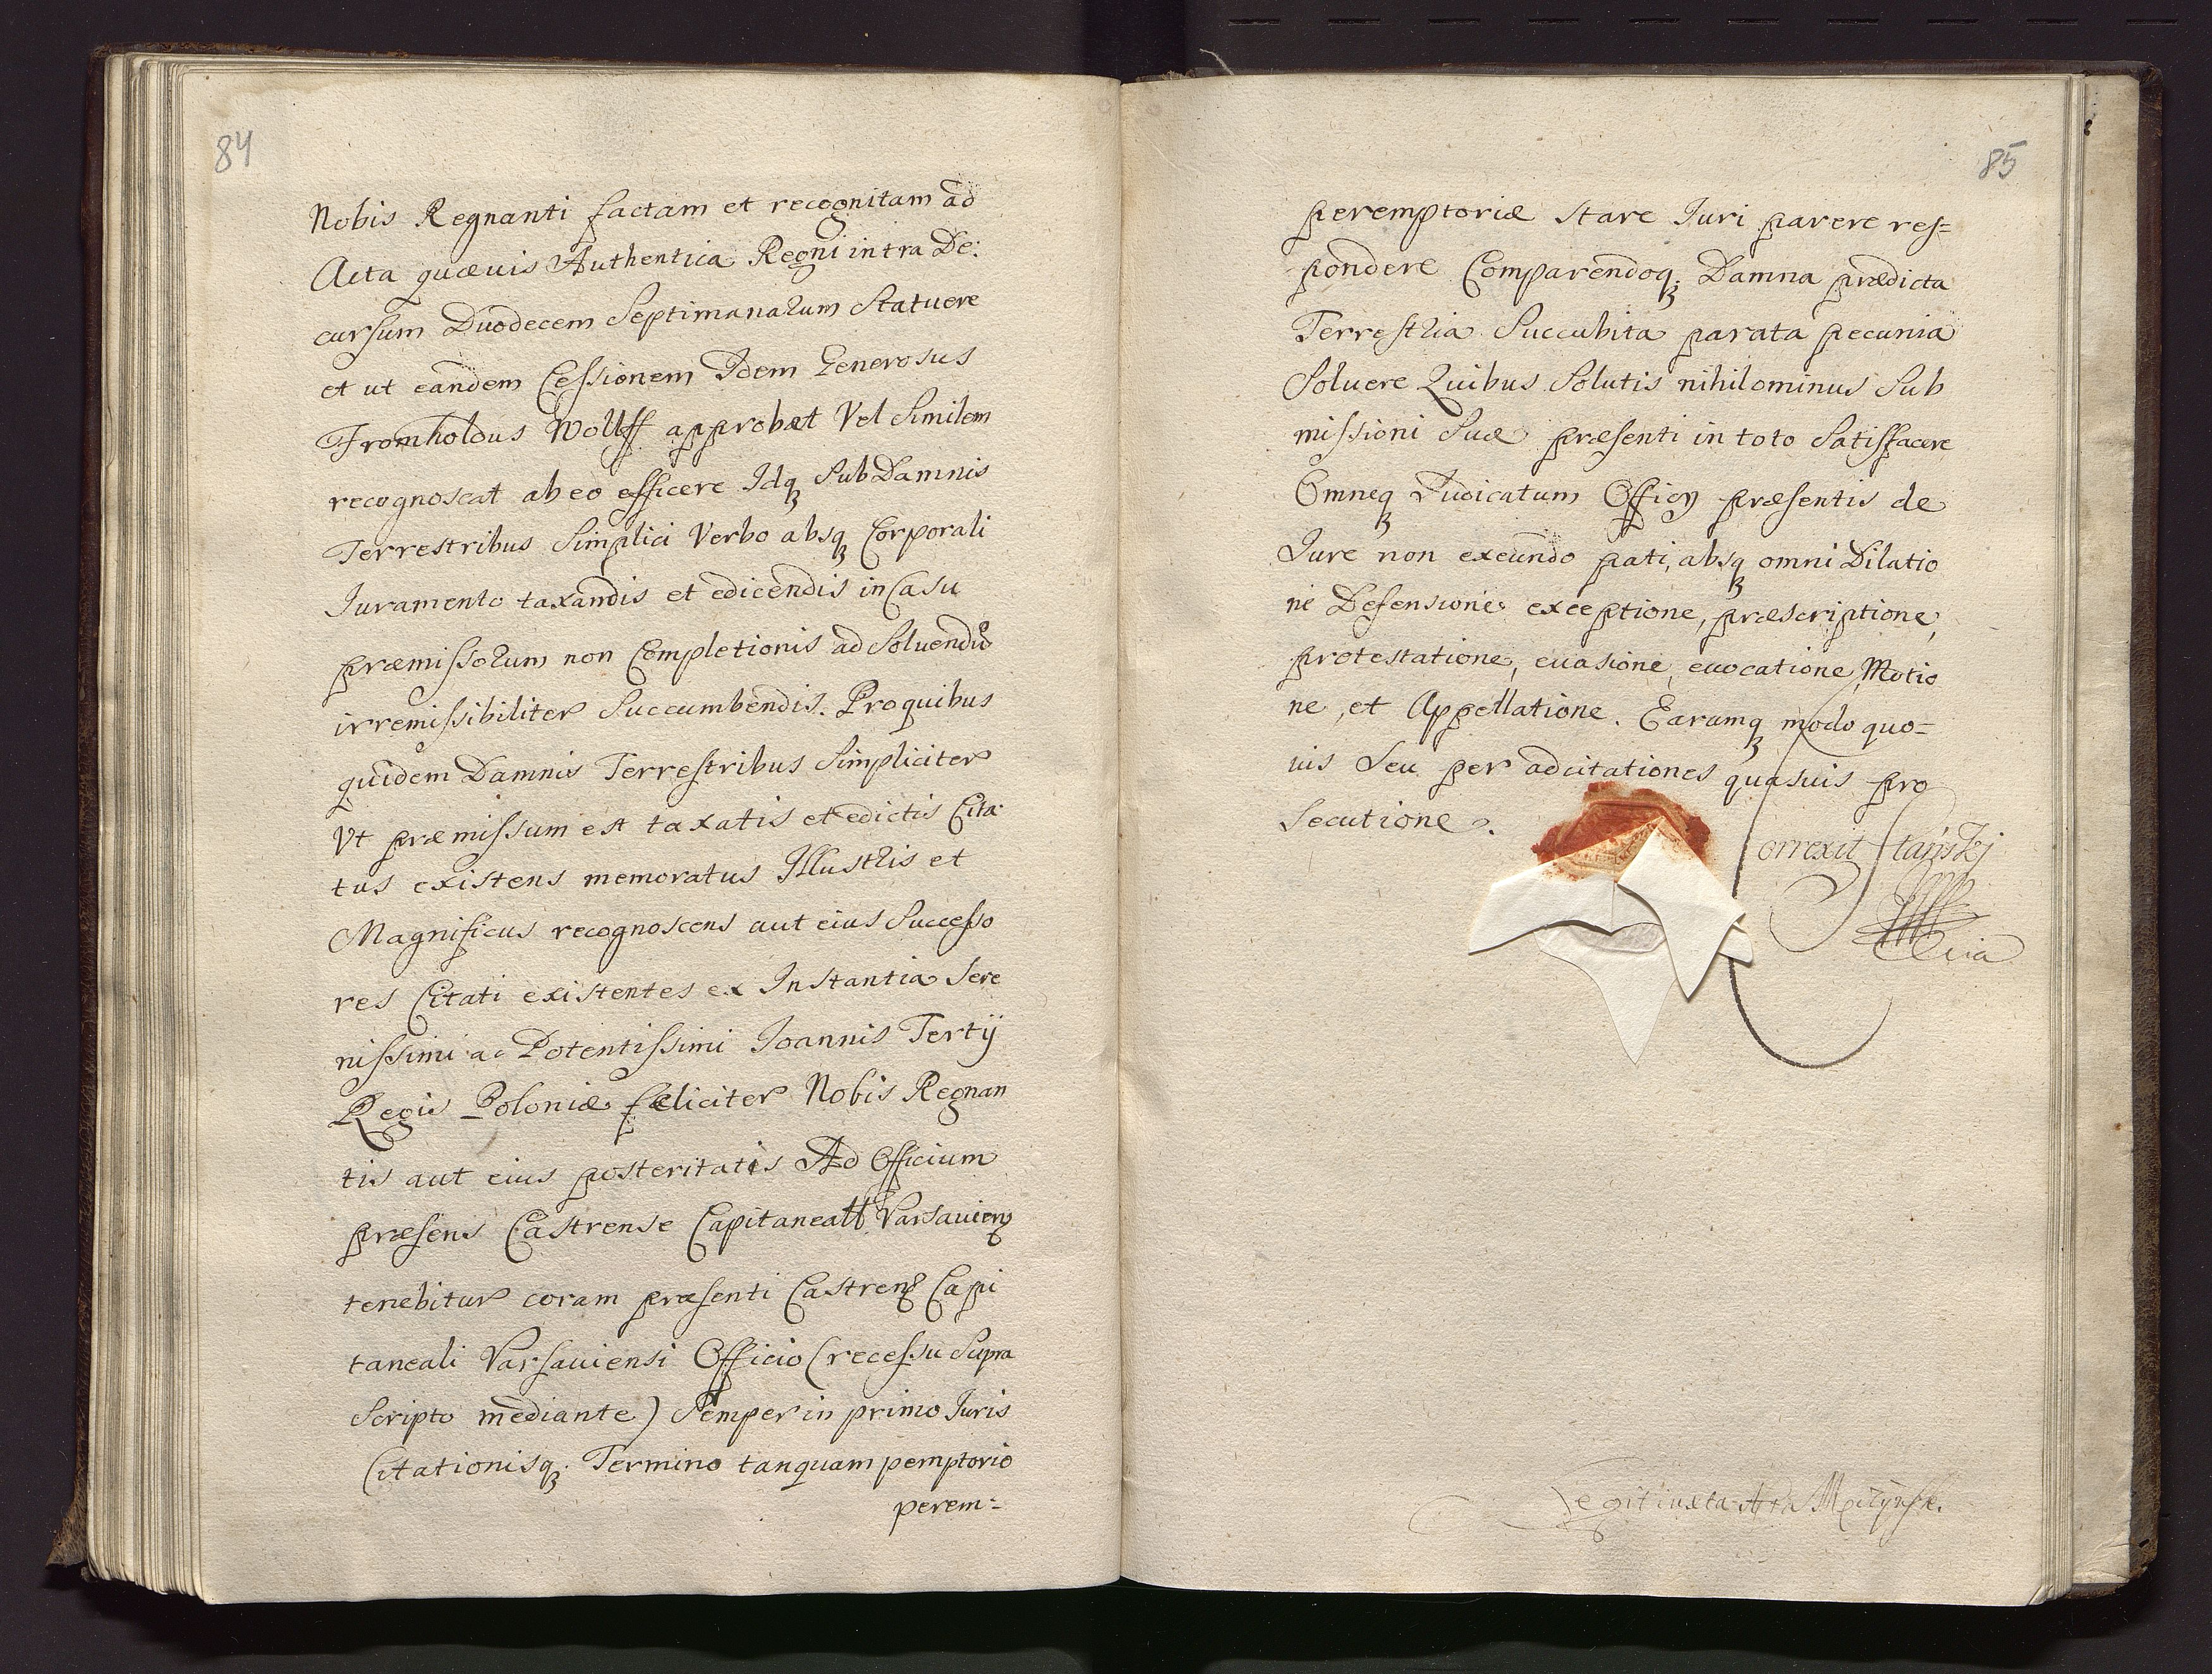 84
Nobis Regnanti factam et recognitam ad
Acta quævis Authentica Regni intra De:
cursum Duodecem Septimanarum Statuere
et ut eandem Cessionem Idem Generosus
Fromholdus Wollff approbæt Vel Similem
recognoscat ab eo efficere Idq Sub Damnis
Terrestribus Simplici Verbo absq Corporali
Iuramento taxandis et edicendis in Casu
præmissorum non Completionis ad Soluendũ
irremissibiliter Succumbendis. Pro quibus
quidem Damnis Terrestribus Simpliciter
Vt præmissum est taxatis et edictis Cita
tus existens memoratus Illustris et
Magnificus recognoscens aut eius Successo
res Citati existentes ex Instantia Sere
nissimi ac Potentissimi Ioannis Tertij
Regis Poloniæ fæliciter Nobis Regnan
tis aut eius posteritatis Ad Officium
præsens Castrense Capitaneale Varsauien
tenebitur coram præsenti Castren Capi
taneali Varsauiensi Officio (recessu Supra
Scripto mediante) Semper in primo Iuris
Citationisq. Termino tanquam pemptorio
perem=
85
peremptoriæ Stare Iuri parere res=
pondere Comparendoq; Damna prædicta
Terrestria Succubita parata pecunia
Soluere Quibus Solutis nihilominus Sub
missioni Suæ præsenti in toto Satisfacere
Omneq Iudicatum Officy præsentis de
Iure non exeundo pati, absq omni Dilatio
ne Defensione exceptione, præscriptione,
protestatione, euasione, euocatione, Motio
ne, et Appellatione. Earumq modo quo=
uis Seu per adcitationes quasuis pro
Secutione.
Correxit
Legit iuxta Acta